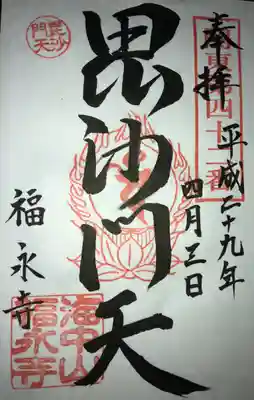 奉拝
平成二十九年
四月三日
毘沙門天
毘沙
門天
福永寺
海中山
福永寺